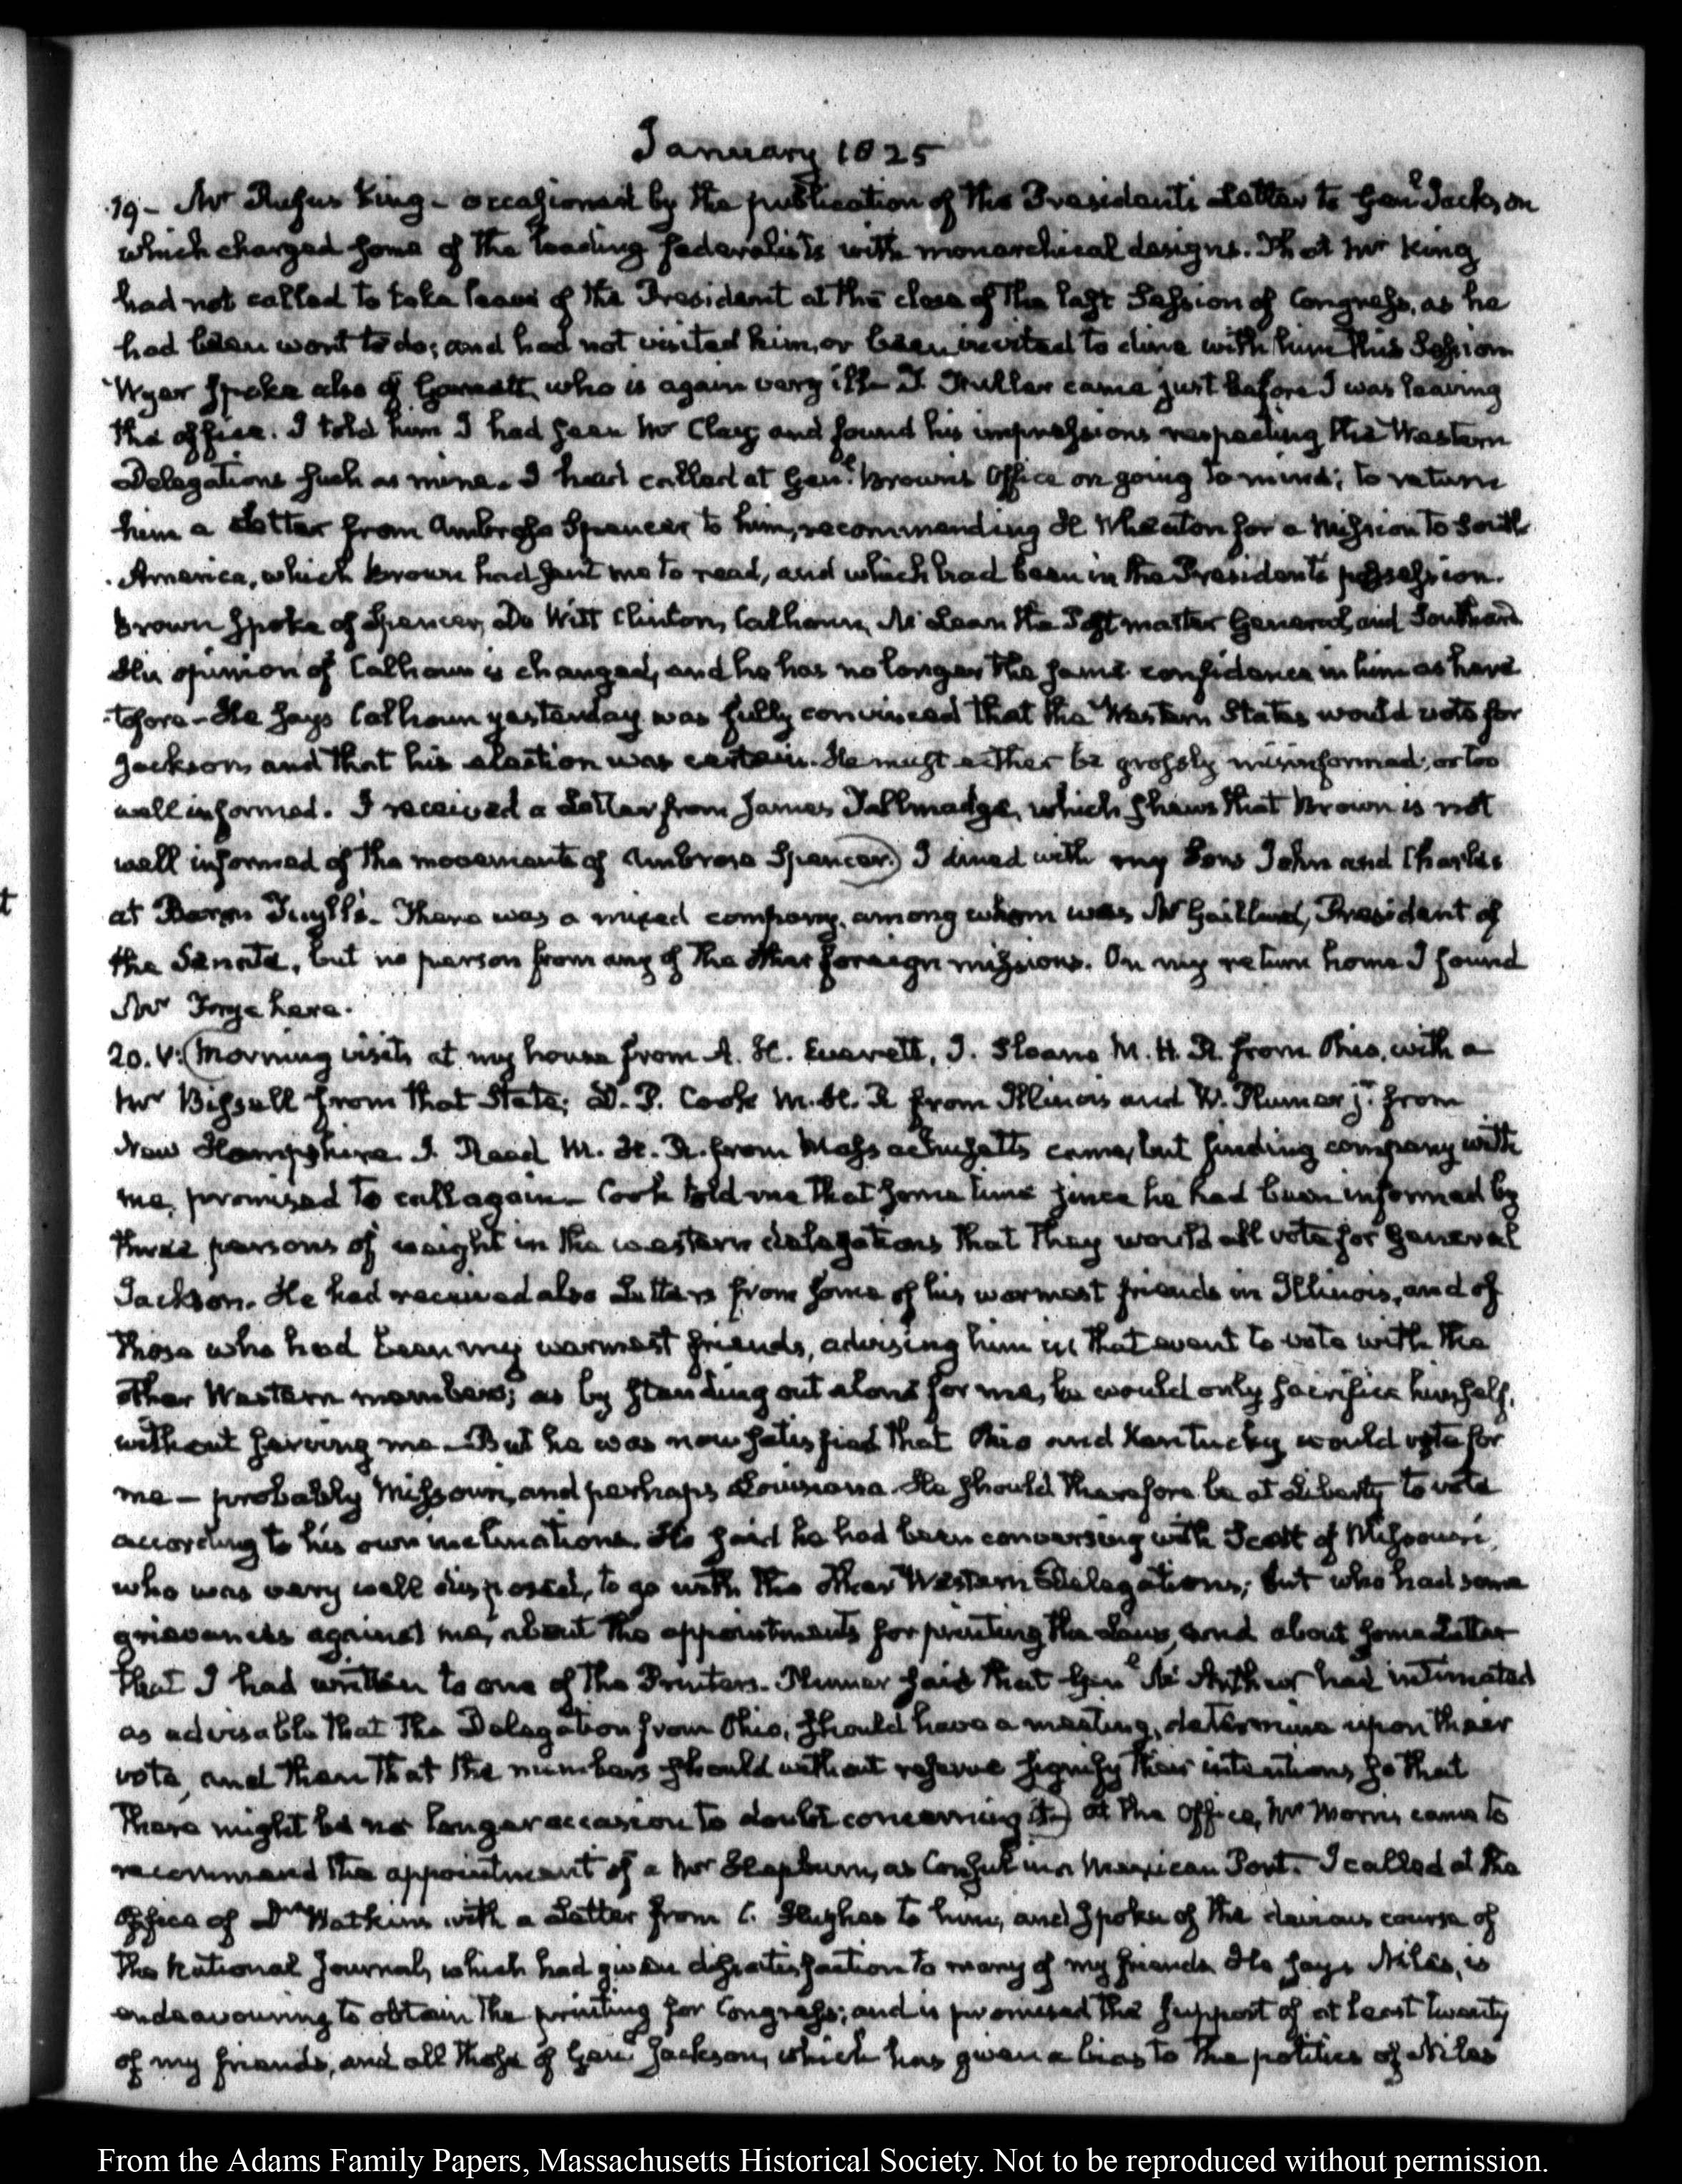 January 1825
19 - Mr Rufus King - occasioned by the publication of the Presidents Letter to Genl. Jackson
which charged some of the leading federalists with monarchical designs. That Mr King
had not called to take leave of the President at the close of the last Session of Congress, as he
had been wont to do; and had not visited him, or been invited to dine with him this Session
Wyer spoke also of Garnett, who is again very ill - T. Fuller came just before I was leaving
the office. I told him I had seen Mr Clay, and found his impressions respecting the Western
Delegations such as mine. I had called at Genl. Brown's Office on going to mine; to return
him a Letter from Ambrose Spencer to him, recommending H Wheaton for a Mission to South
America, which Brown had sent me to read, and which had been in the President's possession.
Brown spoke of Spencer, De Witt Clinton, Calhoun, McLean the Postmaster General, and Southard
His opinion of Calhoun is changed, and he has no longer the same confidence in him as here
tofore - He says Calhoun yesterday was fully convinced that the Western States would vote for
Jackson, and that his election was certain. He must either be grossly misinformed, or too
well informed. I received a Letter from James Tallmadge, which shews that Brown is not
well informed of the movements of Ambrose Spencer.) I dined with my Sons John and Charles
at Baron Tuyll's. There was a mixed company, among whom was Mr Gaillard, President of
the Senate, but no person from any of the other foreign missions. On my return home I found
Mr Frye here.
20. V: (Morning visits at my house from A. H. Everett, J. Sloane M. H. R from Ohio, with a
Mr Bissell from that State; D. P. Cook M. H. R from Illinois and W. Plumer jr. from
New Hampshire. J. Reed M. H. R. from Massachusetts came, but finding company with
me, promised to call again - Cook told me that some time since he had been informed by
three persons of weight in the western delegations that they would all vote for General
Jackson. He had received also Letters from some of his warmest friends in Illinois, and of
those who had been my warmest friends, advising him in that event to vote with the
other Western members; as by standing out alone for me, he would only sacrifice himself,
without serving me - But he was now satisfied that Ohio and Kentucky would vote for
me - probably Missouri, and perhaps Louisiana. He should therefore be at Liberty to vote
according to his own inclinations. He said he had been conversing with Scott of Missouri,
who was very well disposed, to go with the other Western Delegations; but who had some
grievances against me, about the appointments for printing the Laws, and about some Letter
that I had written to one of the Printers. Plumer said that Genl McArthur had intimated
as advisable that the Delegation from Ohio, should have a meeting, determine upon their
vote, and then that the members should without reserve signify their intentions, so that
there might be no longer occasion to doubt concerning it -) at the Office, Mr Morris came to
recommend the appointment of a Mr Hepburn, as Consul in a Mexican Port. I called at the
Office of Dr Watkins with a Letter from C. Hughes to him, and spoke of the devious course of
the National Journal, which had given dissatisfaction to many of my friends. He says Niles, is
endeavouring to obtain the printing for Congress; and is promised the support of at least twenty
of my friends, and all those of Genl. Jackson, which has given a bias to the politics of Niles
From the Adams Family Papers, Massachusetts Historical Society. Not to be reproduced without permission.